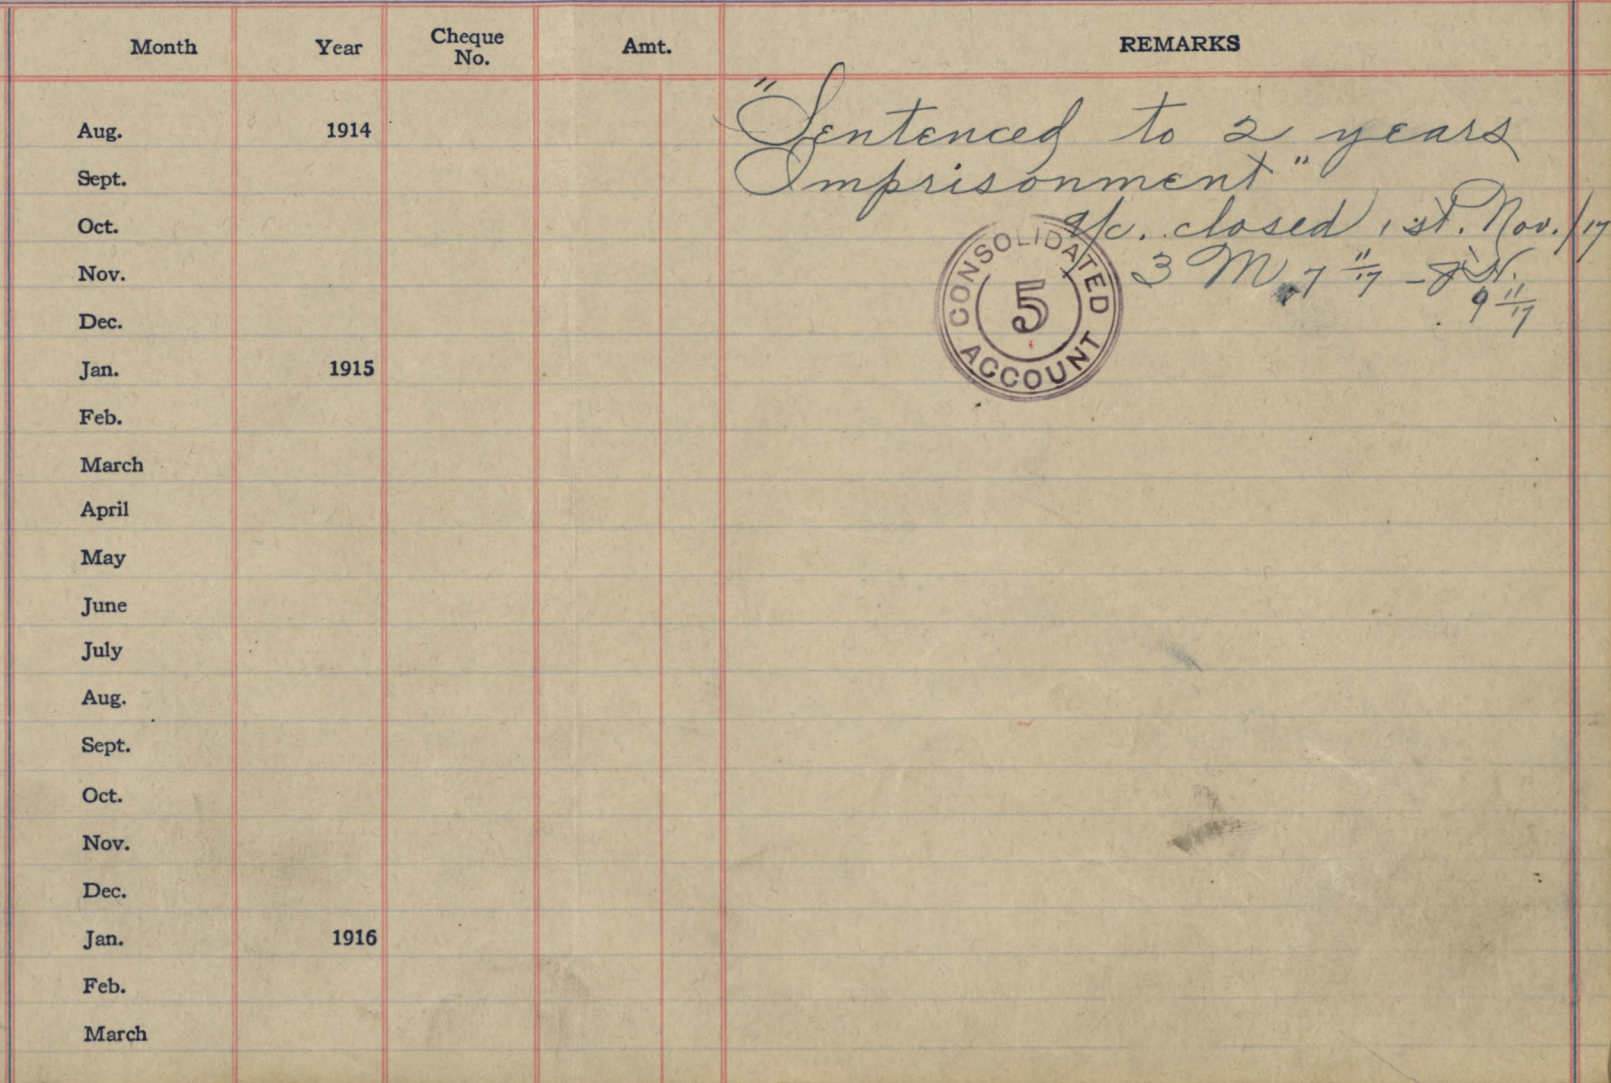 Month Year Cheque No. Amt. REMARKS
Aug. 1914 "Sentenced to 2 years
Sept. Imprisonment"
Oct. a/c. closed 1st. Nov./17
Nov. 3 M 7 11/17 -
9 11/17
Dec.
CONSOLIDATED 5 ACCOUNT
Jan. 1915
Feb.
March
April
May
June
July
Aug.
Sept.
Oct.
Nov.
Dec.
Jan. 1916
Feb.
March